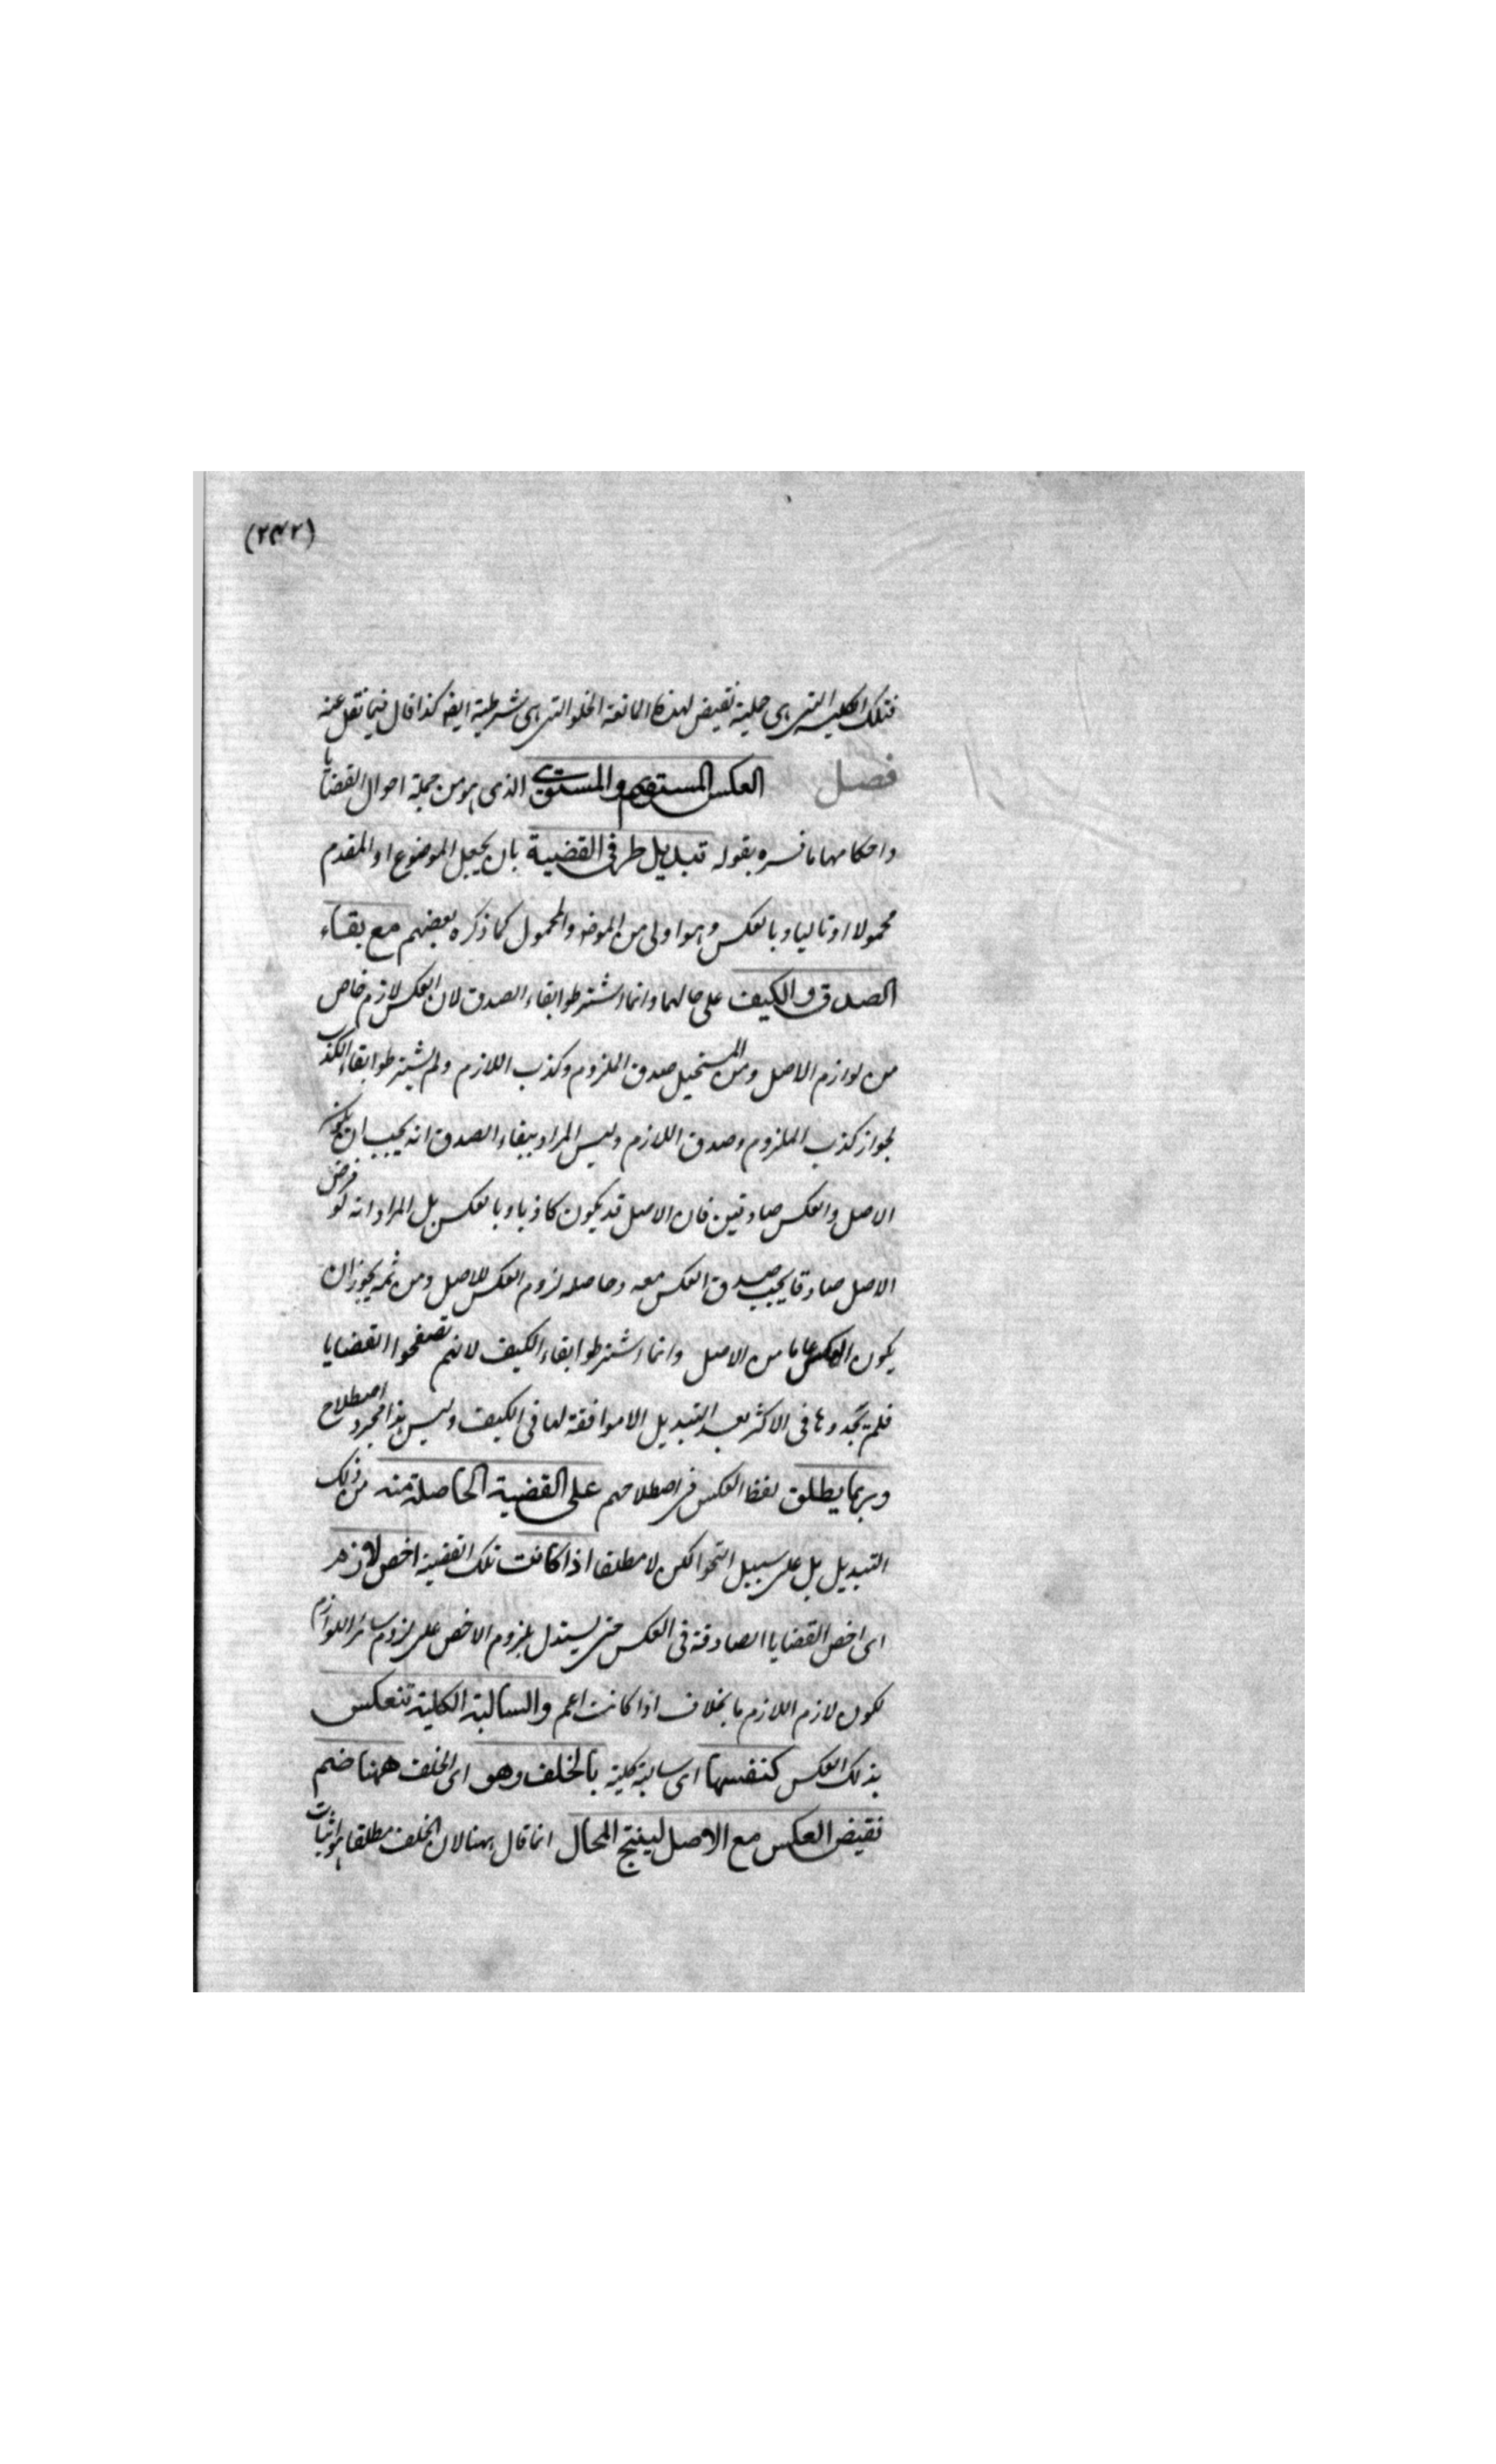 (٢٤٢)
فتلك الكلية التى هى حملية نقيض لهذه المانعة الخلو التى هى شرطية ايضه كذا قال فيما نقل عنه
فصل العكس المستقيم والمستوى الذى هو من جملة احوال القضايا
واحكامها ما فسره بقوله تبديل طرفى القضية بان يجعل الموضوع او المقدم
محمولا او تاليا وبالعكس وهو اولى من الموضو والمحمول كما ذكره بعضهم مع بقاء
الصدق والكيف على حالهما وانما اشترطوا بقاء الصدق لان العكس لازم خاص
من لوازم الاصل ومن المستحيل صدق الملزوم وكذب اللازم ولم يشترطوا بقاء الكذب
لجواز كذب الملزوم وصدق اللازم وليس المراد ببقاء الصدق انه يجب ان يكون
الاصل والعكس صادقين فان الاصل قد يكون كاذبا وبالعكس بل المراد انه لو فرض
الاصل صادقا يجب صدق العكس معه وحاصله لزوم العكس للاصل ومن ثمه يجوز ان
يكون العكس عاما من الاصل وانما اشترطوا بقاء الكيف لانهم تصفحوا القضايا
فلم يجدوها فى الاكثر بعد التبديل الا موافقة لها فى الكيف وليس هذا مجرد اصطلاح
وربما يطلق لفظ العكس فى اصطلاحهم على القضية الحاصلة منه من ذلك
التبديل بل على سبيل التجوز لكن لا مطلقا اذا كانت تلك القضية اخص لازم
اى اخص القضايا الصادقة فى العكس حتى يستدل بلزوم الاخص على لزوم سائر اللوازم
لكون لازم اللازم لازما بخلاف اذا كانت اعم والسالبة الكلية تنعكس
بذلك العكس كنفسها اى سالبة كلية بالخلف وهو اى الخلف ههنا ضم
نقيض العكس مع الاصل لينتج المحال انما قال ههنا لان الخلف مطلقا هو اثبات